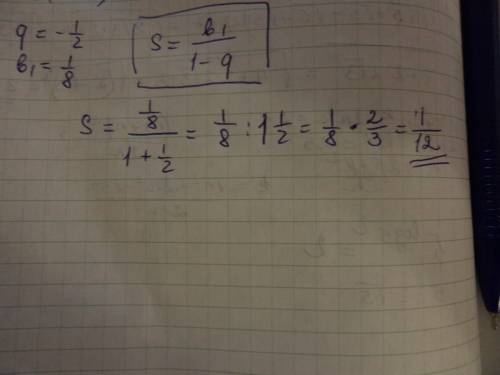 q = -1/2
S = b₁/(1 - q)
b₁ = 1/8
S = (1/8)/(1 + 1/2) = 1/8 : 1 1/2 = 1/8 · 2/3 = 1/12